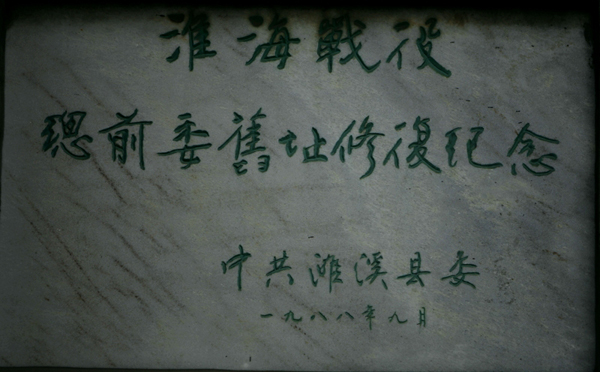 淮海戰役
總前委舊址修復纪念
中共濉溪县委
一九八八年九月